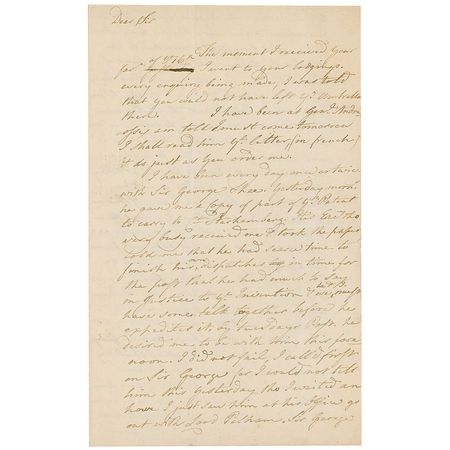 Dear Sir
The moment I received your
fav.r of y.e 76th I went to your lodgings.
every enquiry being made, I was told
that you could not have left y.r Umbrella
there. I have been at Gen.l
offis am told must come tomorrow
I shall read him y.r letter, (in french)
& do just as you order me.
I have been every day once or twice
with Sir George Shee. Yesterday morn.g
he gave me a Copy of part of y.r Patent
to carry to P. Starhemberg. His Exc.y tho
very busy received me & took the paper
told me that he had scarce time to
finish his own dispatches in time for
the post that he had much to say
in Justice to y.r Invention & that he & we must
have some talk together before he
expedited it by tuesdays Post. he
desired me to be with him this fore
noon. I did not fail, I call'd first
on Sir George for I would not tell
him this Yesterday tho I waited an
hour I just saw him at his Office go
out with Lord Pelham, Sir George